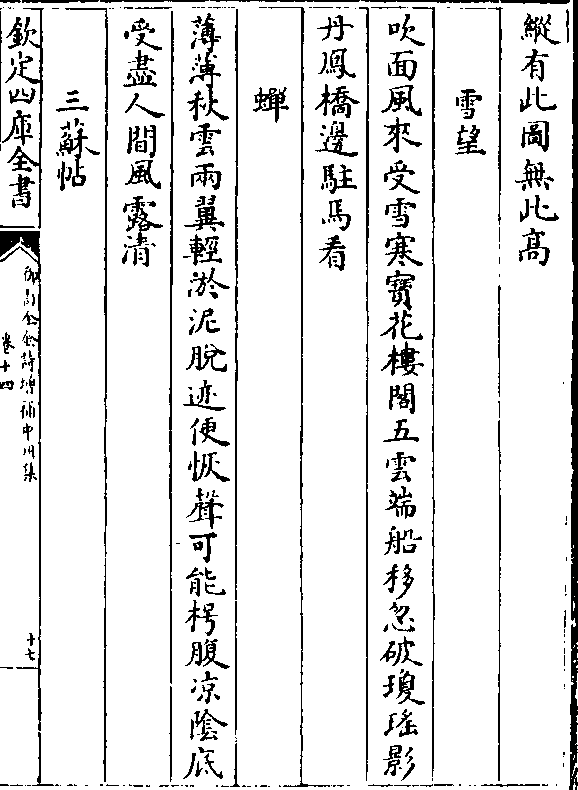 縱有此圖無此髙
雪望
吹面風來受雪寒寶花樓閣五雲端船移忽破瓊瑶影
丹鳳橋邊駐馬看
蟬
薄薄秋雲兩翼輕淤泥脫迹便恢聲可能枵腹凉隂底
受盡人間風露清
三蘇帖
欽定四庫全書
御訂全金詩增補中州集
卷十四
十七